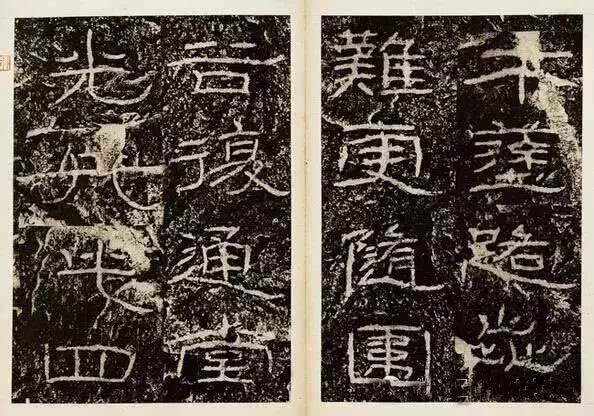 午塗路歰
難更隨圍
谷復通堂
光凡此四